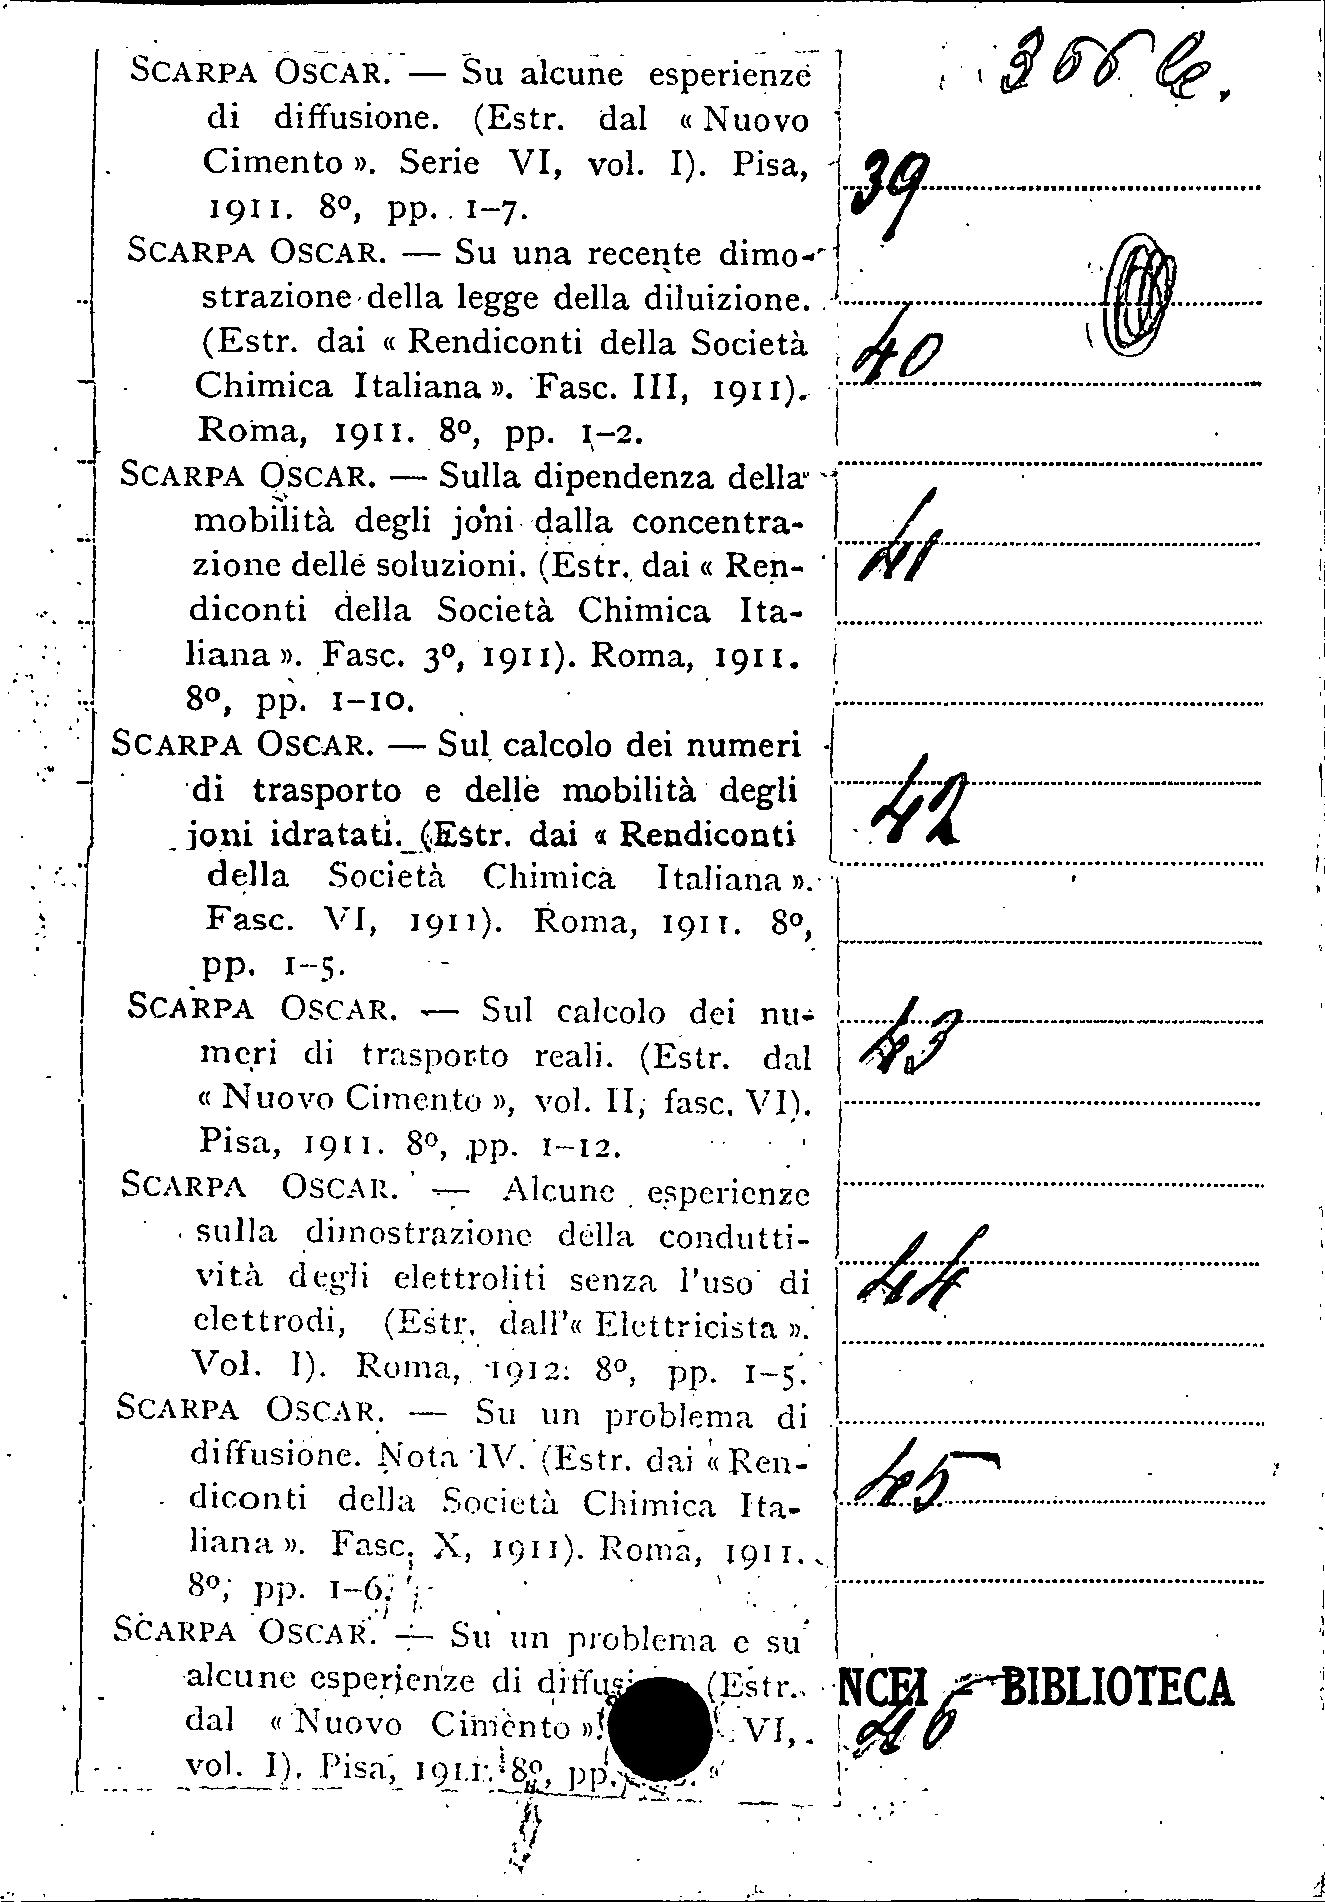 366 le.
SCARPA OSCAR. — Su alcune esperienze
di diffusione. (Estr. dal « Nuovo
Cimento ». Serie VI, vol. I). Pisa,
1911. 8º, pp. 1-7.
39
SCARPA OSCAR. — Su una recente dimo-
strazione della legge della diluizione.
(Estr. dai « Rendiconti della Società
Chimica Italiana ». Fasc. III, 1911).
Roma, 1911. 8º, pp. 1-2.
40
SCARPA OSCAR. — Sulla dipendenza della
mobilità degli joni dalla concentra-
zione delle soluzioni. (Estr. dai « Ren-
diconti della Società Chimica Ita-
liana ». Fasc. 3º, 1911). Roma, 1911.
8º, pp. 1-10.
41
SCARPA OSCAR. — Sul calcolo dei numeri
di trasporto e delle mobilità degli
joni idratati. (Estr. dai « Rendiconti
della Società Chimica Italiana ».
Fasc. VI, 1911). Roma, 1911. 8º,
pp. 1-5.
42
SCARPA OSCAR. — Sul calcolo dei nu-
meri di trasporto reali. (Estr. dal
« Nuovo Cimento », vol. II, fasc. VI).
Pisa, 1911. 8º, pp. 1-12.
43
SCARPA OSCAR. — Alcune esperienze
sulla dimostrazione della condutti-
vità degli elettroliti senza l'uso di
elettrodi, (Estr. dall'« Elettricista ».
Vol. I). Roma, 1912. 8º, pp. 1-5.
44
SCARPA OSCAR. — Su un problema di
diffusione. Nota IV. (Estr. dai « Ren-
diconti della Società Chimica Ita-
liana ». Fasc. X, 1911). Roma, 1911.
8º, pp. 1-6.
45
SCARPA OSCAR. — Su un problema e su
alcune esperienze di (Estr.
dal « Nuovo Cimento » VI,
vol. I). Pisa, 1911. 8º, pp.
46
NCEI - BIBLIOTECA